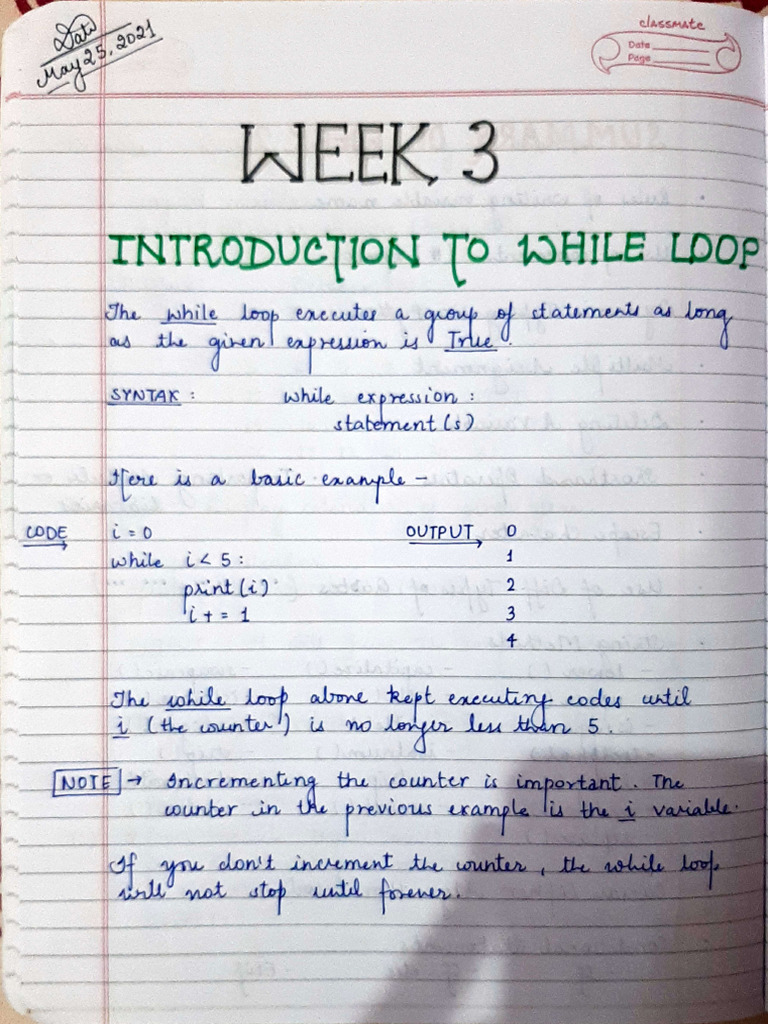 Date
May 25, 2021
classmate
Date
Page
WEEK 3
INTRODUCTION TO WHILE LOOP
The while loop executes a group of statements as long
as the given expression is True.
SYNTAX : while expression :
statement(s)
Here is a basic example -
CODE i = 0 OUTPUT 0
while i < 5 : 1
print(i) 2
i + = 1 3
4
The while loop above kept executing codes until
i (the counter) is no longer less than 5.
NOTE → Incrementing the counter is important. The
counter in the previous example is the i variable.
If you don't increment the counter, the while loop
will not stop until forever.